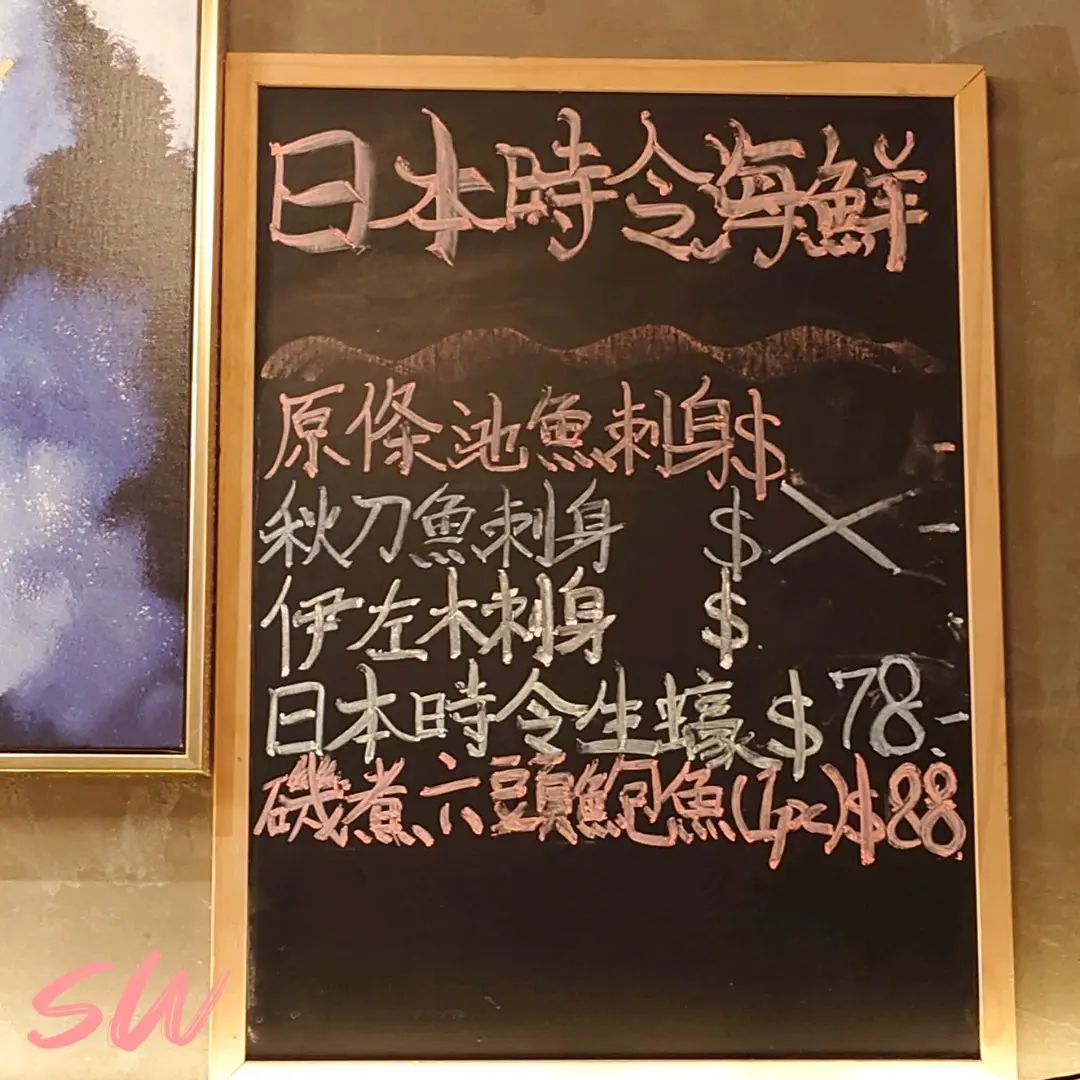 日本時令海鮮
原條池魚刺身$ -
秋刀魚刺身 $ X -
伊左木刺身 $ -
日本時令生蠔 $78.-
磯煮六頭鮑魚(1pc)$88.
SW